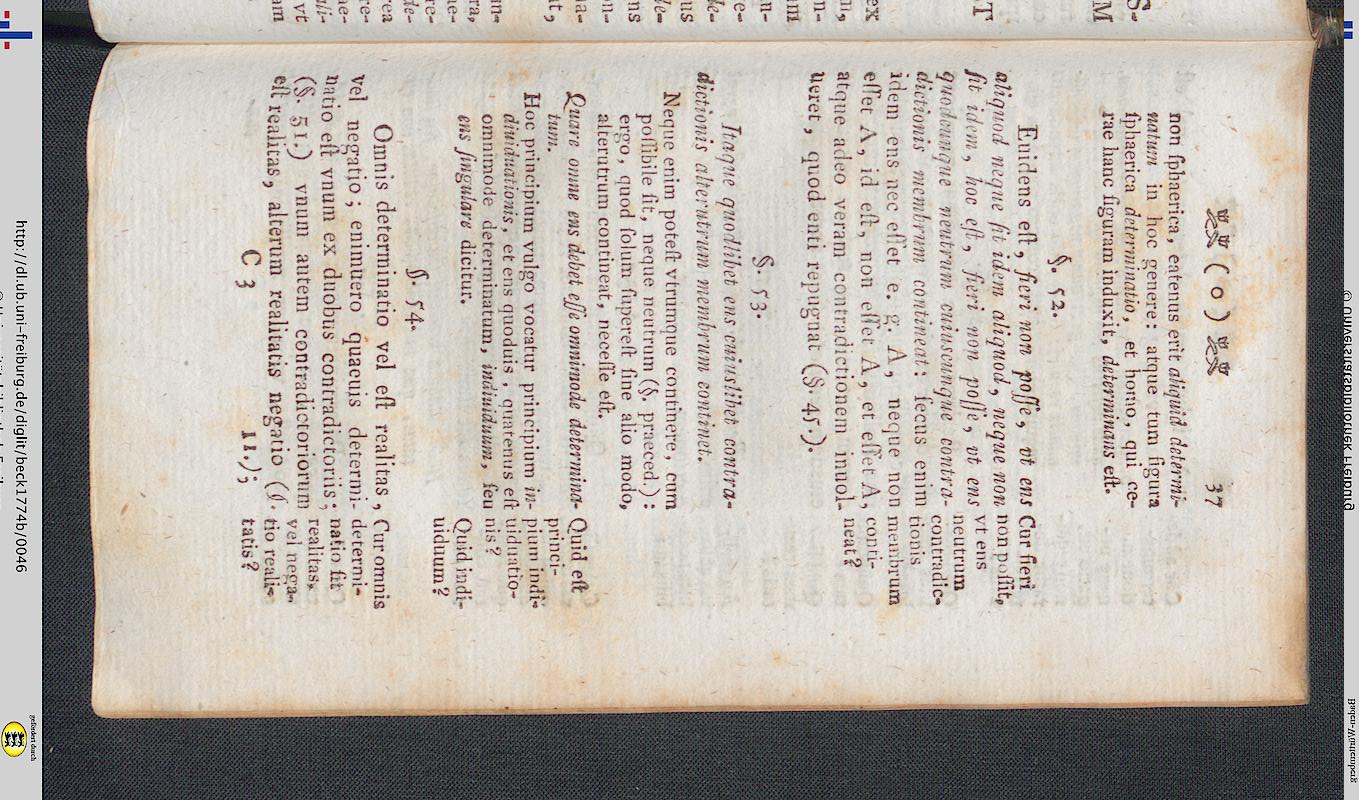 ( o )
37
non ſphaerica, eatenus erit aliquid determi-
natum in hoc genere: atque tum figura
ſphaerica determinatio, et homo, qui ce-
rae hanc figuram induxit, determinans eſt.
§. 52.
Euidens eſt, fieri non poſſe, vt ens
aliquod neque ſit idem aliquod, neque non
ſit idem, hoc eſt, fieri non poſſe, vt ens
quodcunque neutrum cuiuscunque contra-
dictionis membrum contineat: ſecus enim
idem ens nec eſſet e. g. A, neque non
eſſet A, id eſt, non eſſet A, et eſſet A,
atque adeo veram contradictionem inuol-
ueret, quod enti repugnat (§. 45.).
Cur fieri
non poſſit,
vt ens
neutrum
contradic-
tionis
membrum
conti-
neat?
§. 53.
Itaque quodlibet ens cuiuslibet contra-
dictionis alterutrum membrum continet.
Neque enim poteſt vtrumque continere, cum
poſſibile ſit, neque neutrum (§. praeced.):
ergo, quod ſolum ſupereſt ſine alio modo,
alterutrum contineat, neceſſe eſt.
Quare omne ens debet eſſe omnimode determina-
tum.
Hoc principium vulgo vocatur principium in-
diuiduationis, et ens quoduis, quatenus eſt
omnimode determinatum, indiuiduum, ſeu
ens ſingulare dicitur.
Quid eſt
princi-
pium indi-
uiduatio-
nis?
Quid indi-
uiduum?
§. 54.
Omnis determinatio vel eſt realitas,
vel negatio; enimuero quaeuis determi-
natio eſt vnum ex duobus contradictoriis;
(§. 51.) vnum autem contradictoriorum
eſt realitas, alterum realitatis negatio (§.
Cur omnis
determi-
natio ſit
realitas,
vel nega-
tio reali-
tatis?
C 3
11.);
http://dl.ub.uni-freiburg.de/diglit/beck1774b/0046
gefördert durch